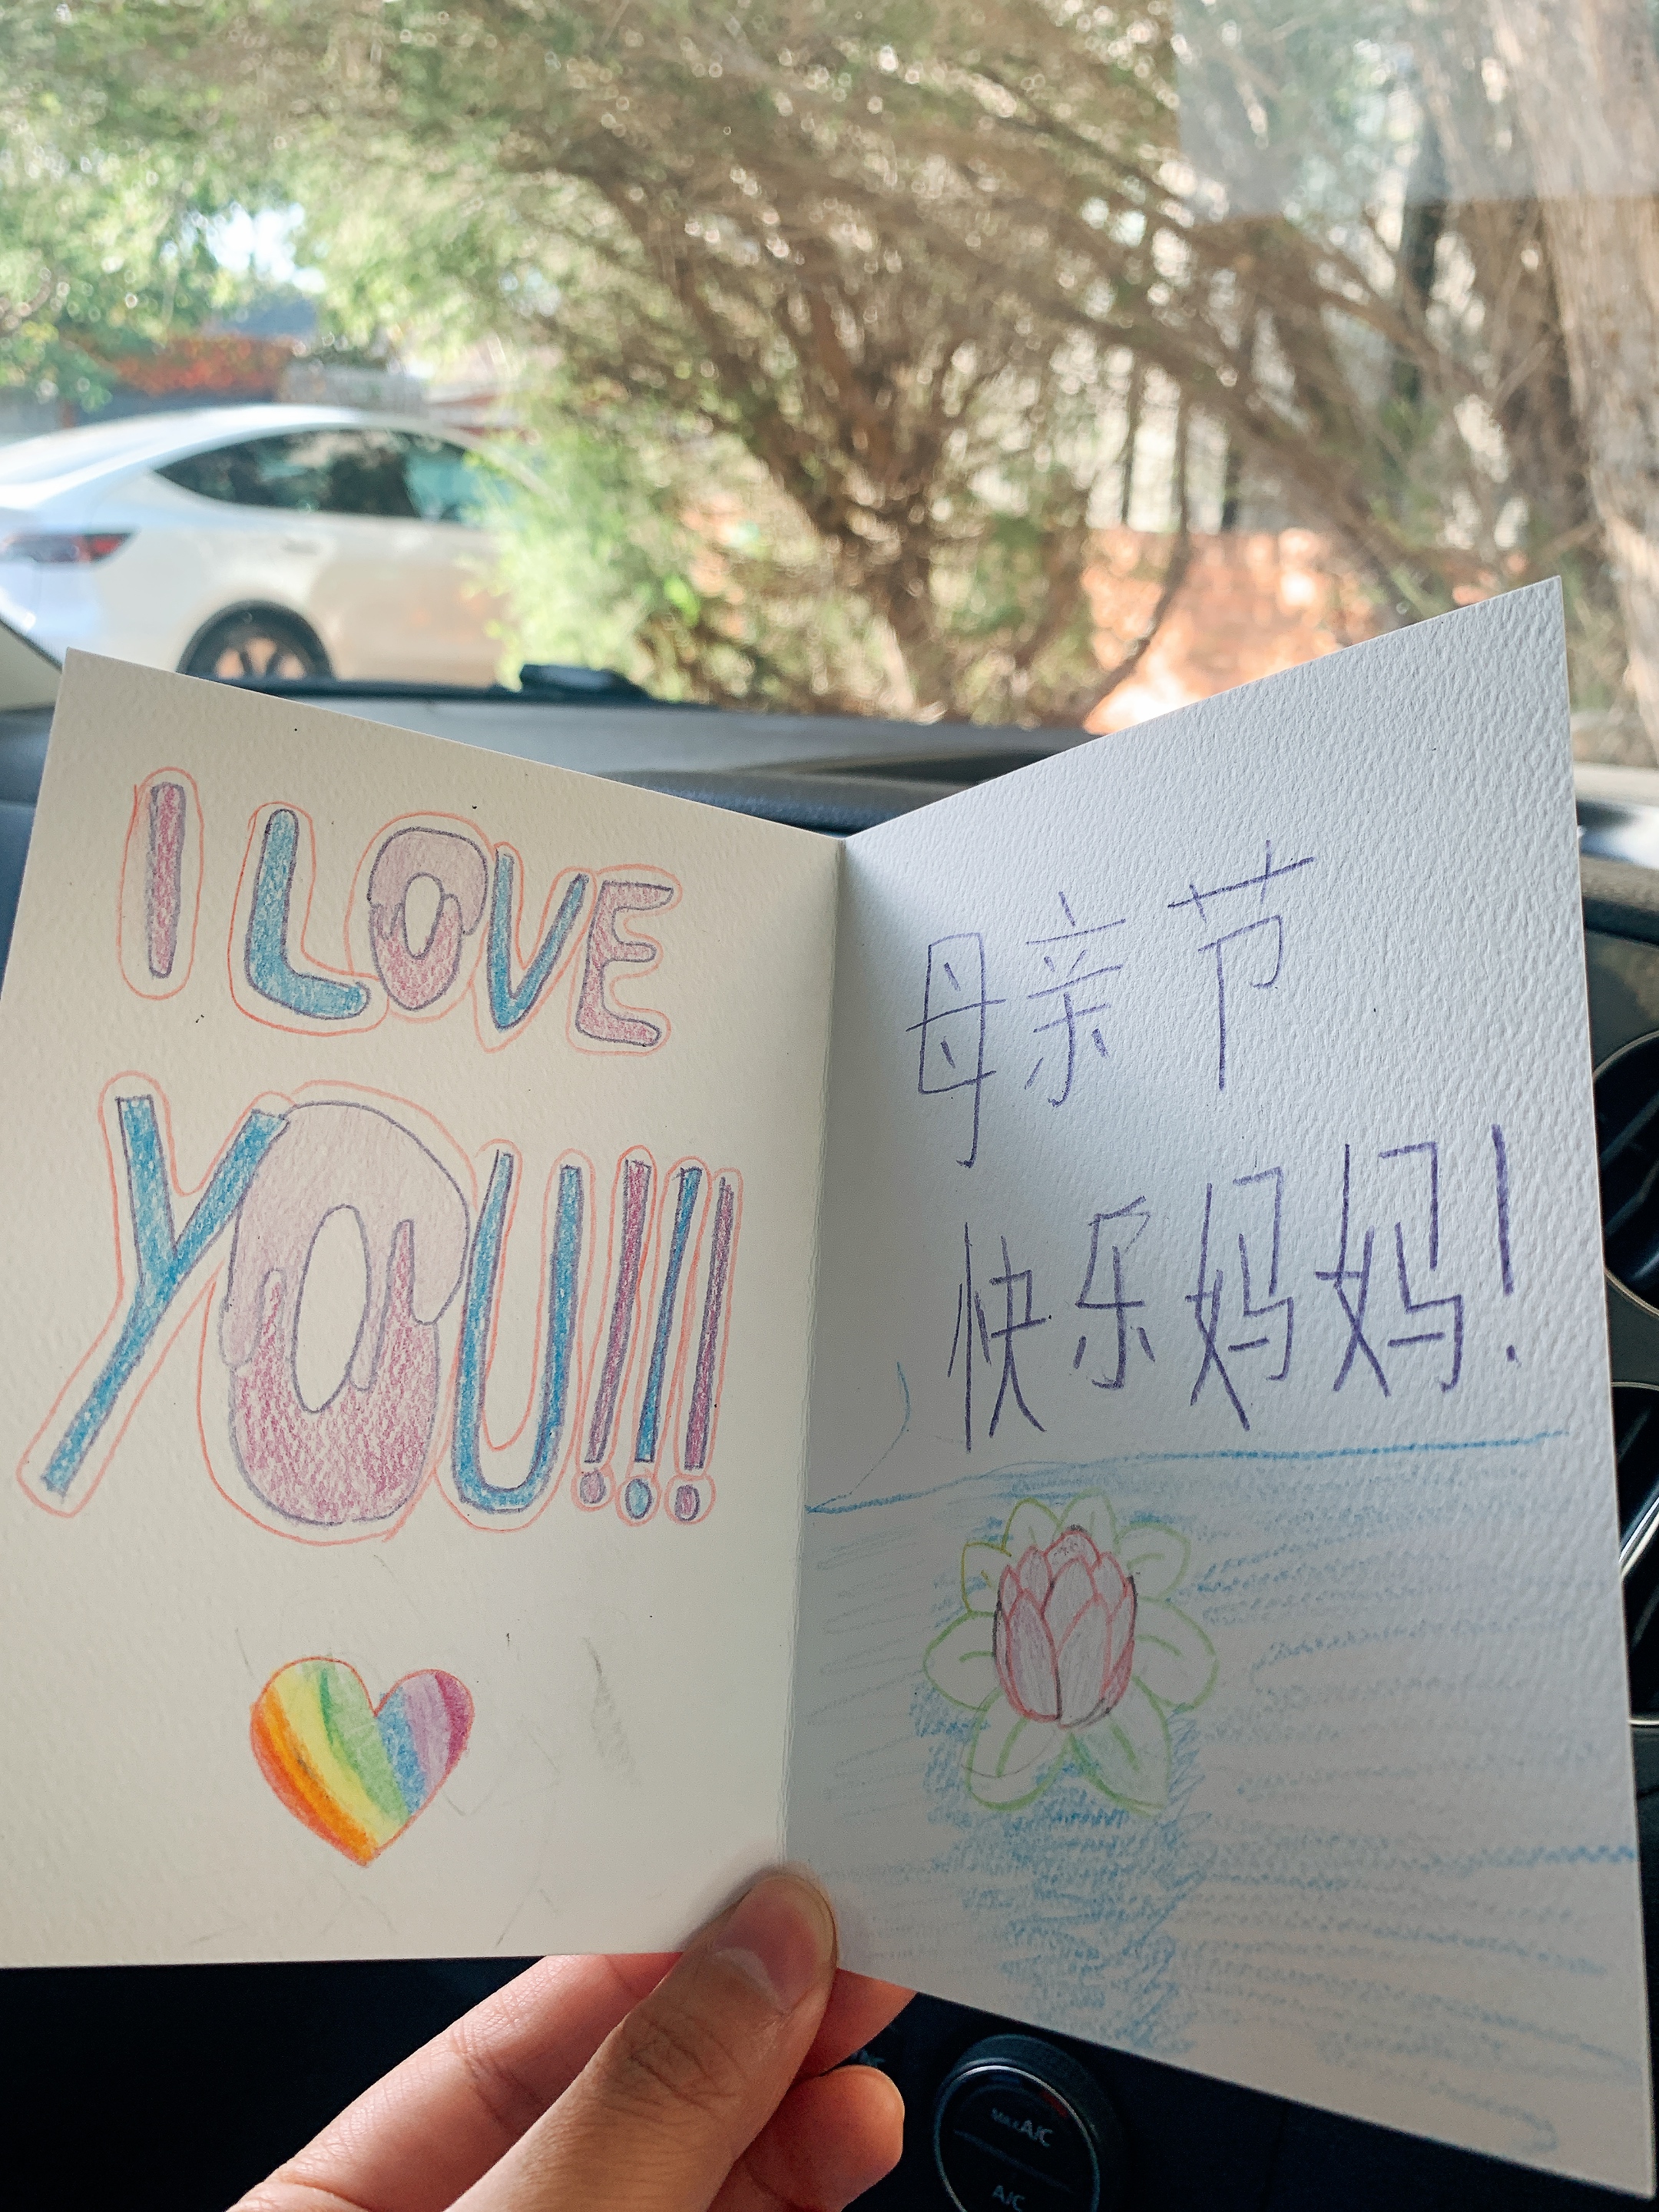 I LOVE
YOU!!!
母亲节
快乐妈妈!
MAX A/C
A/C